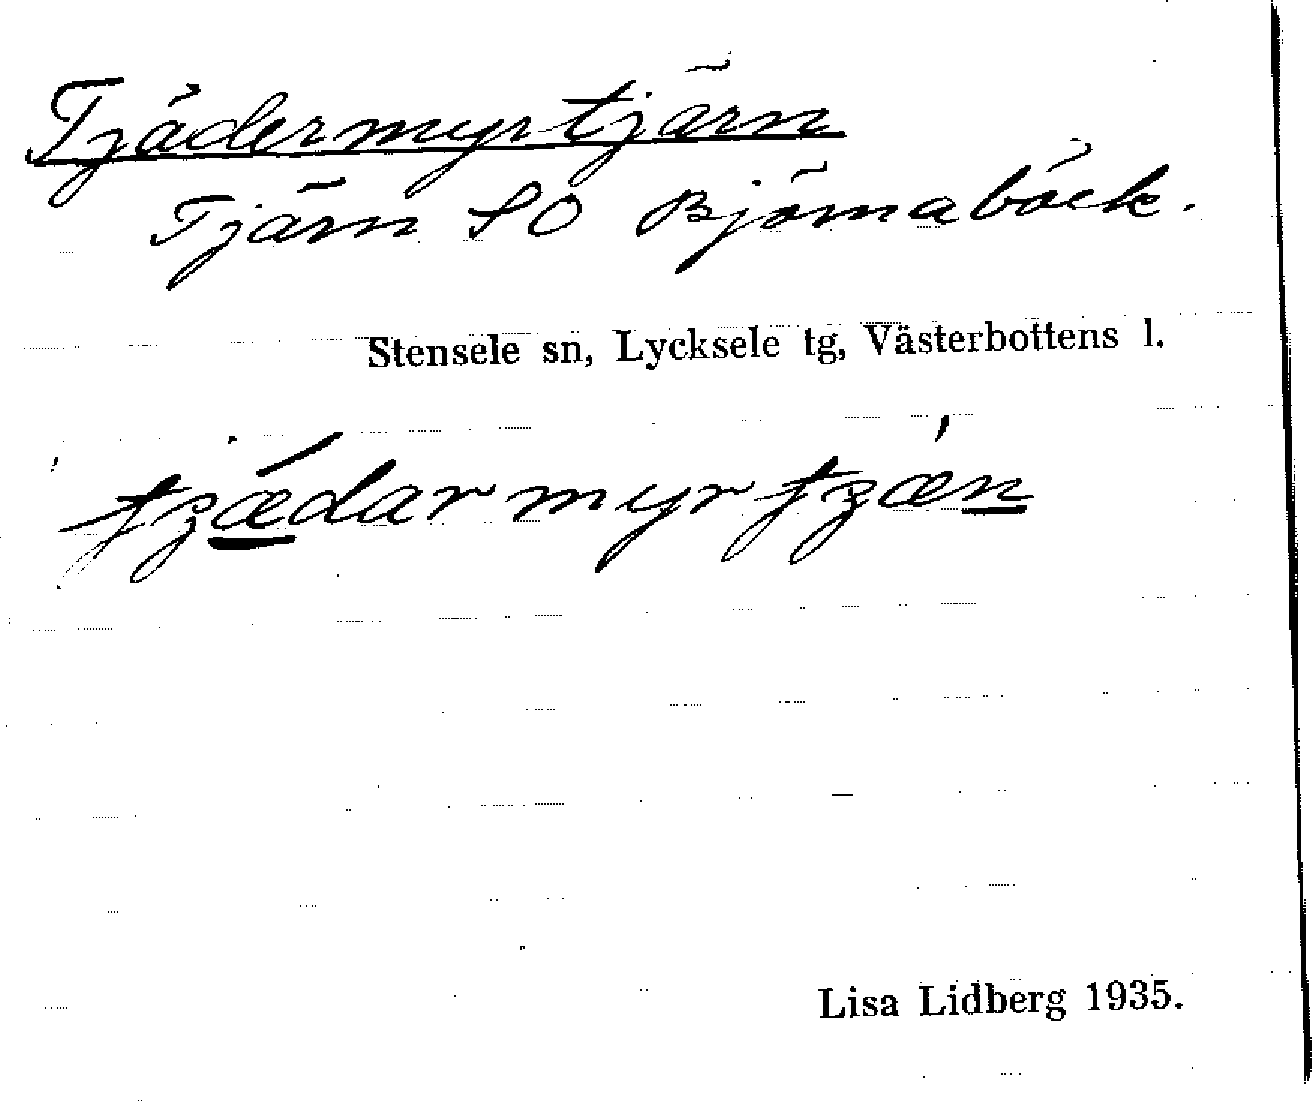 Tjädermyrtjärn
Tjärn SO Björnabäck.
Stensele sn, Lycksele tg, Västerbottens l.
Lisa Lidberg 1935.